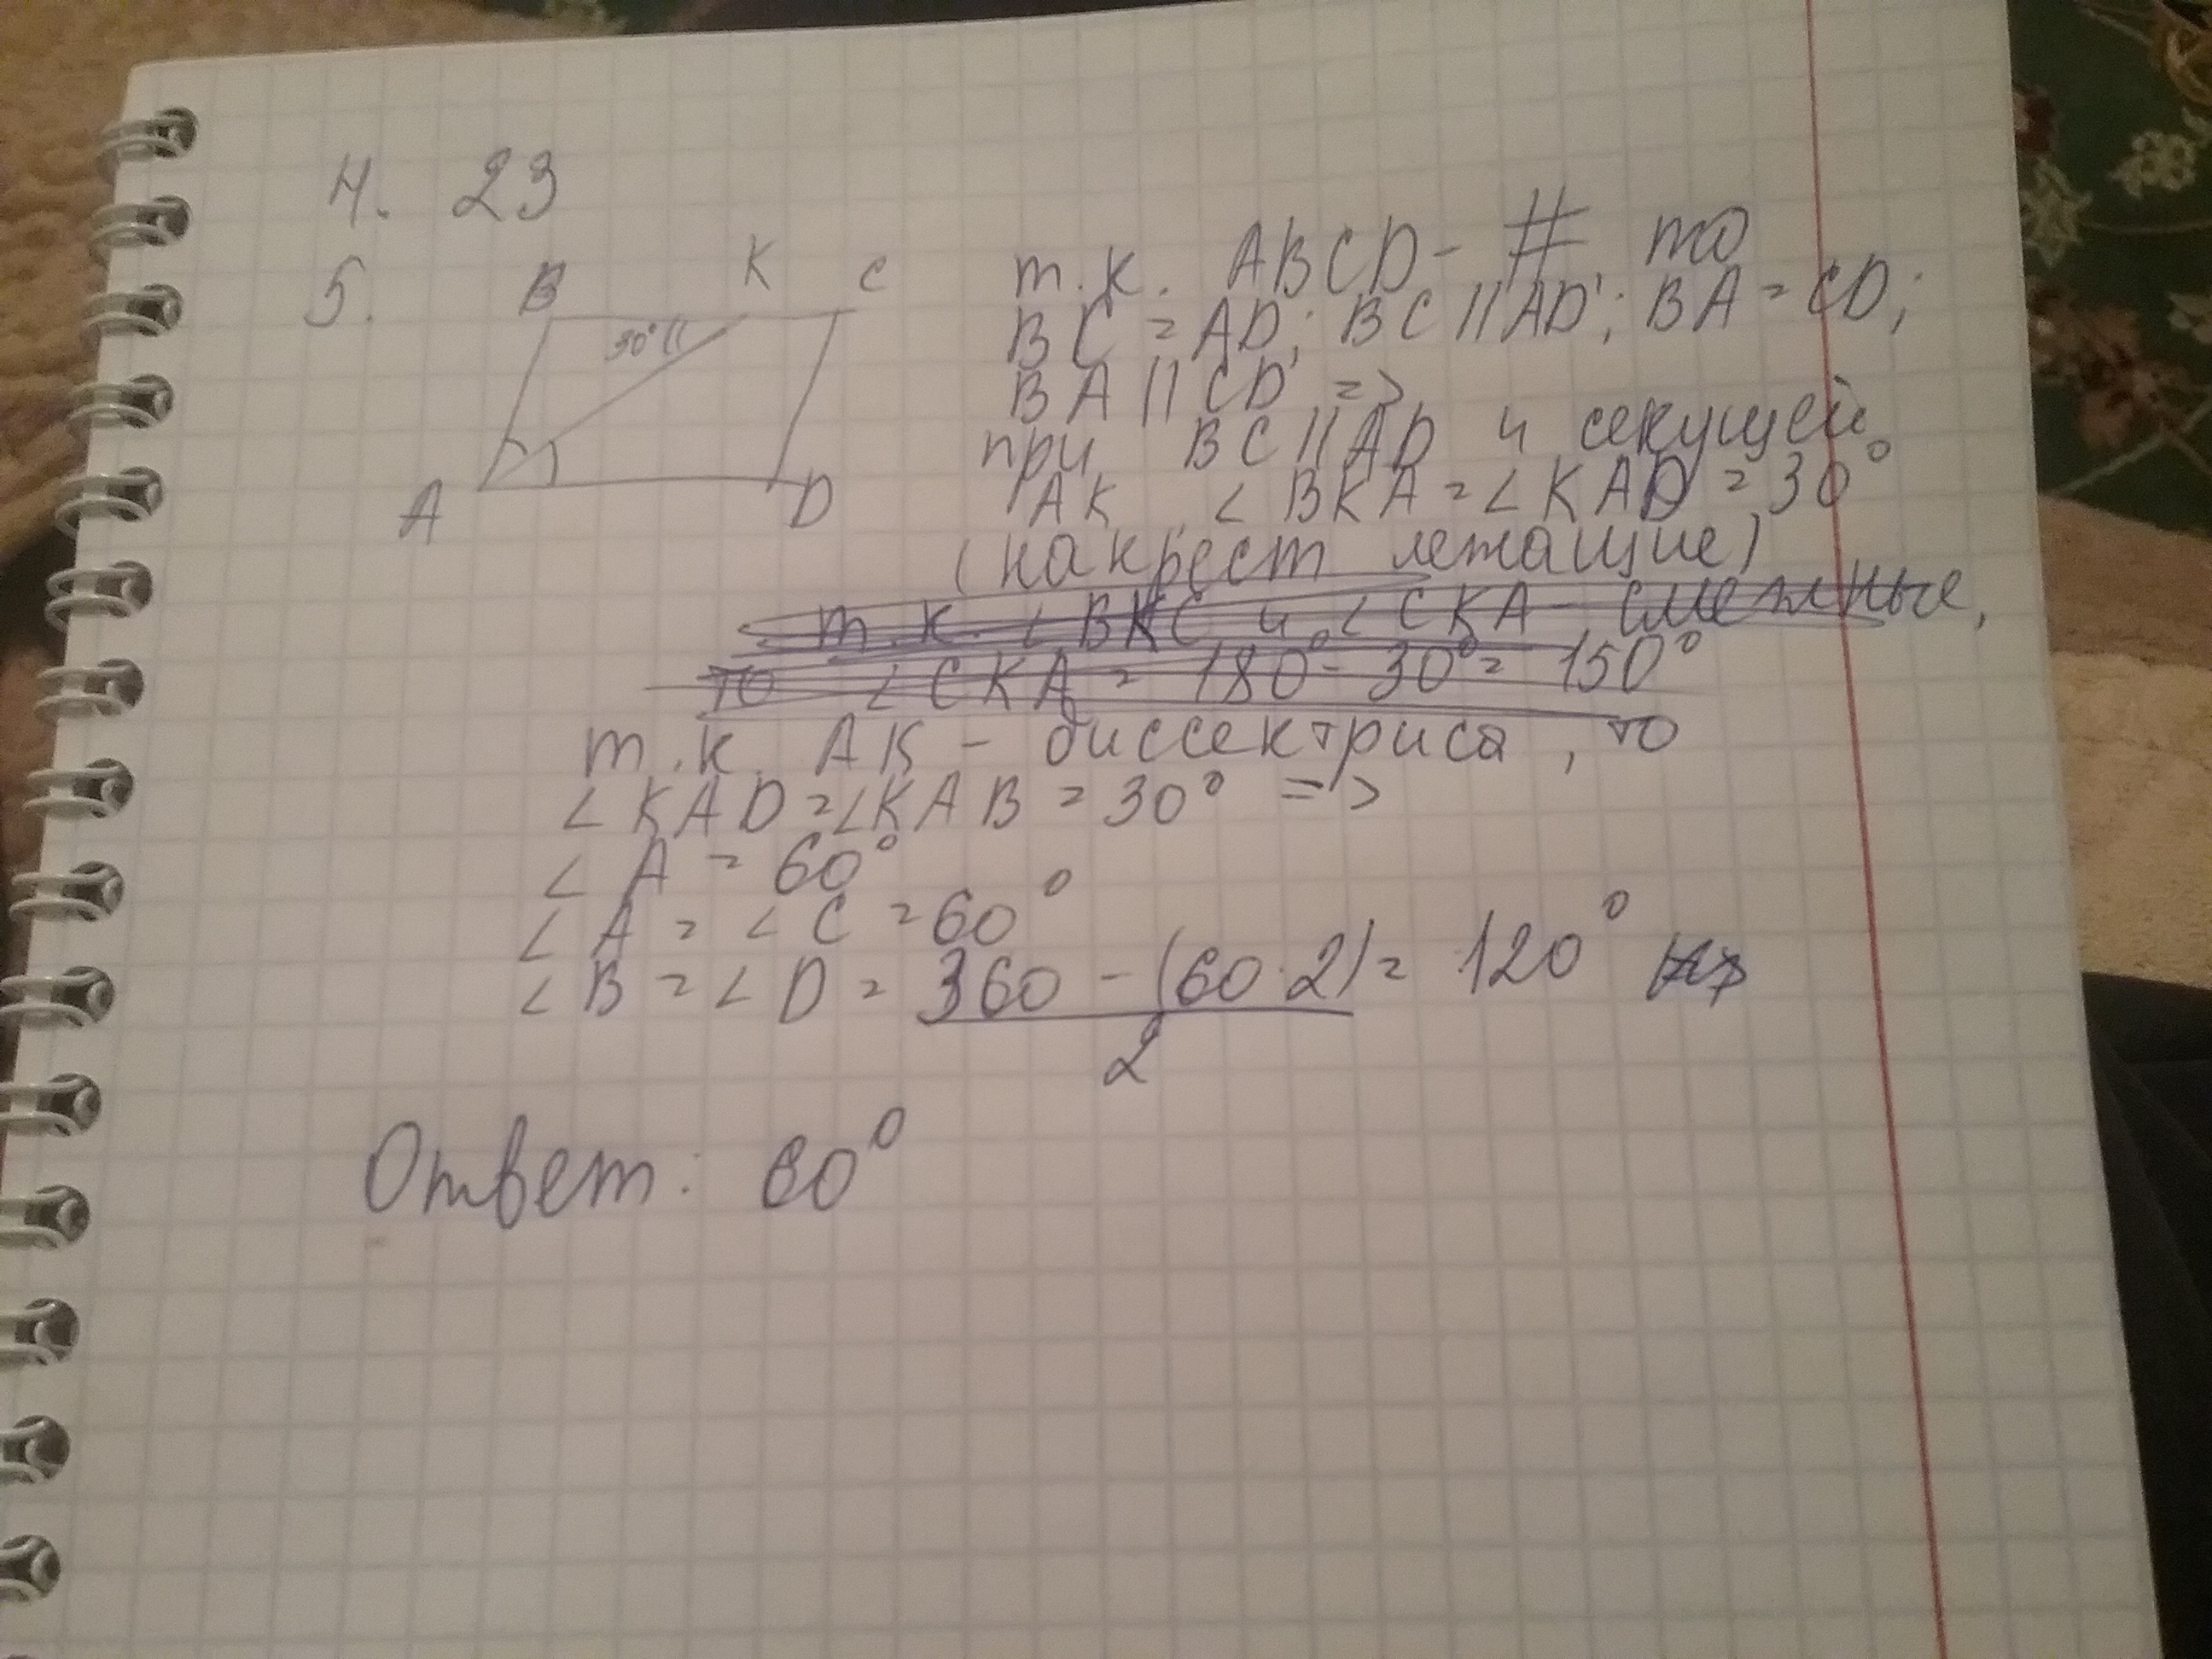 4. 23
5.
B K C
30°
A D
т.к. ABCD - # то
BC = AD; BC || AD; BA = CD;
BA || CD =>
при BC || AD и секущей
AK ∠BKA = ∠KAD = 30°
(накрест лежащие)
т.к. ∠BKC и ∠CKA смежные,
то ∠CKA = 180° - 30° = 150°
т.к. AK - биссектриса, то
∠KAD = ∠KAB = 30° =>
∠A = 60°
∠A = ∠C = 60°
∠B = ∠D = 360 - (60·2) = 120°
2
Ответ: 60°